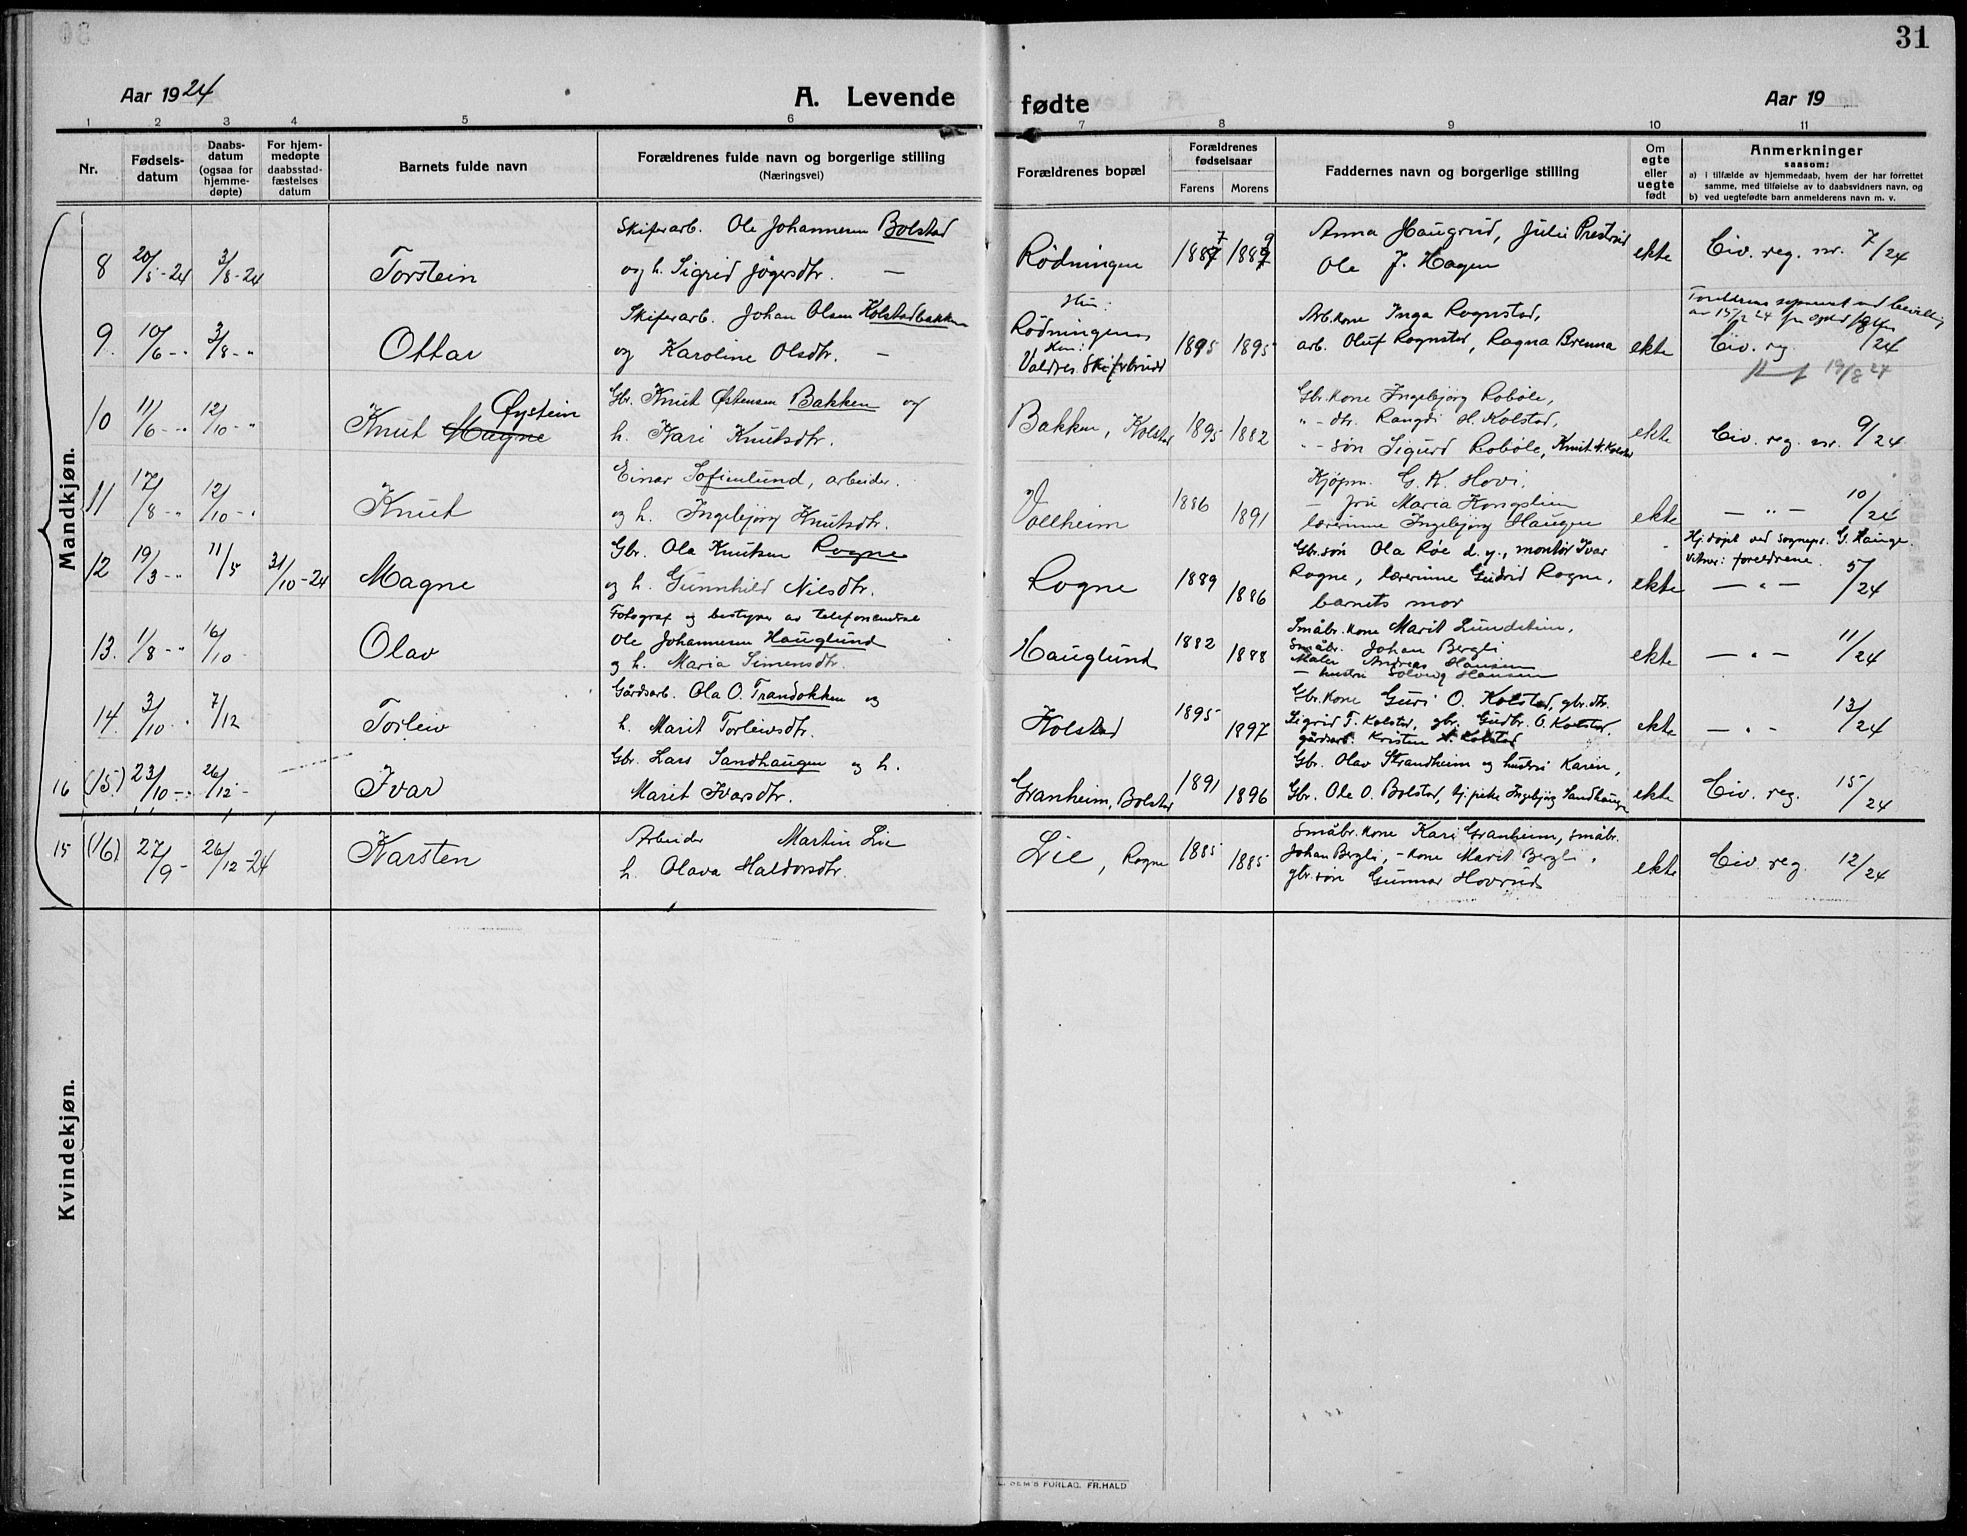 31
Aar 1924
A. Levende
fødte
Aar 19
1 2 3 4 5 6 7 8 9 10 11
Nr.
Fødsels-
datum
Daabs-
datum
(ogsaa for
hjemme-
døpte)
For hjem-
medøpte
daabsstad-
fæstelses
datum
Barnets fulde navn
Forældrenes fulde navn og borgerlige stilling
(Næringsvei)
Forældrenes bopæl
Forældrenes
fødselsaar
Farens Morens
Faddernes navn og borgerlige stilling
Om
egte
eller
uegte
født
Anmerkninger
saasom:
a) i tilfælde av hjemmedaab, hvem der har forrettet
samme, med tilføielse av to daabsvidners navn, og
b) ved uegtefødte barn anmelderens navn m. v.
Mandkjøn.
Skiferarb. Ole Johannesen Bolstad
og h. Sigrid Jøgersdtr. —
8 20/5-24 3/8-24 Torstein
Rødningen 1887 1889
Anna Haugrud, Julie Prestrud
Ole J. Hagen
ekte Civ. reg. nr. 7/24
Skiferarb. Johan Olsen Kolstadbakken
og Karoline Olsdtr. —
9. 10/6-" 3/8-" Ottar
Rødningen
Valdres Skiferbrudd
1895 1895
Arb.kone Inga Rognstad,
arb. Oluf Rognstad, Ragna Brenna
ekte
Civ. reg. 8/24
19/8 24
10 11/6-" 12/10-" Knut Magne Øystein
Gbr. Knut Østensen Bakken og
h. Kari Knutsdtr.
Bakken, Kolstad 1895 1882
Gbr.kone Ingebjørg Robøle,
"-dtr. Rangdi H. Kolstad,
"-søn Sigurd Robøle, Knut H. Kolstad
ekte Civ. reg. nr. 9/24
11 17/8-" 12/10-" Knut
Einar Sofienlund, arbeider.
og h. Ingebjørg Knutsdtr.
Vollheim 1886 1891
Kjøpm. G. K. Hovi,
— fru Maria Kongslien
lærerinne Ingebjørg Haugen
ekte — " — 10/24
12 19/3-" 11/5 31/10-24 Magne
Gbr. Ola Knutsen Rogne
og h. Gunnhild Nilsdtr.
Rogne 1889 1886
Gbr.søn Ola Røe d.y., montør Ivar
Rogne, lærerinne Gudrid Rogne,
barnets mor
ekte
Hj.døpt ved sognepr. G. Hauge.
Vitner: foreldrene.
— " — 5/24
13. 1/8-" 16/10- Olav
Fotograf og bestyrer av telefoncentral
Ole Johannesen Hauglund
og h. Maria Simensdtr.
Hauglund 1882 1888
Småbr.kone Marit Lundstein,
Småbr. Johan Bergli
Maler Andreas Hansen
— hustru Solveig Hansen
ekte — " — 11/24
14. 3/10-" 7/12 Torleiv
Gårdsarb. Ola O. Trandokken og
h. Marit Torleivsdtr.
Kolstad 1895 1897
Gbr.kone Guri O. Kolstad, gbr.dtr.
Sigrid T. Kolstad, gbr. Gudbr. O. Kolstad,
gårdsarb. Kristen A. Kolstad
ekte — " — 13/24
16 (15.) 23/10-" 26/12- Ivar
Gbr. Lars Sandhaugen og h.
Marit Ivarsdtr.
Granheim, Bolstad 1891 1896
Gbr. Olav Strandheim og hustru Karin,
Gbr. Ole O. Bolstad, tj.pike Ingebjørg Sandhaugen
ekte Civ. reg. 15/24
15 (16) 27/9- 26/12-24 Karsten
Arbeider Martin Lie
h. Olava Haldorsdtr.
Lie, Rogne 1885 1885
Småbr.kone Kari Granheim, småbr.
Johan Bergli, -kone Marit Bergli,
gbr.søn Gunnar Hovrud
ekte Civ. reg. 12/24
Kvindekjøn.
SEM'S FORLAG. FR.HALD